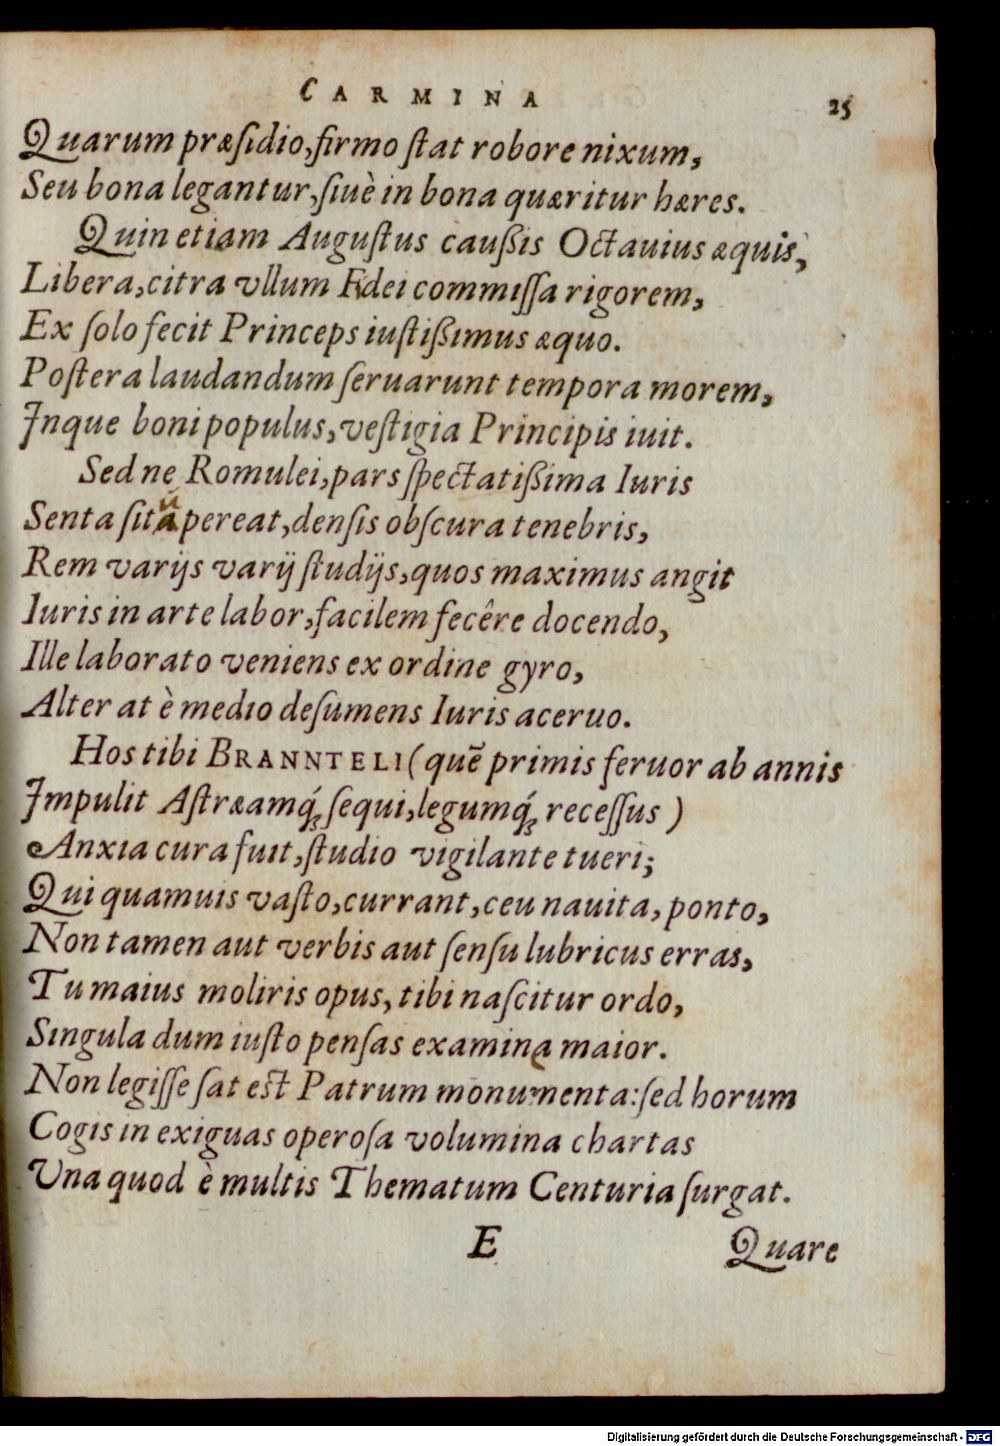 CARMINA 25
Quarum præſidio, firmo ſtat robore nixum,
Seu bona legantur, ſiuè in bona quæritur hæres.
Quin etiam Auguſtus cauſsis Octauius æquis,
Libera, citra vllum Fidei commiſſa rigorem,
Ex ſolo fecit Princeps iuſtiſsimus æquo.
Poſtera laudandum ſeruarunt tempora morem,
Inque boni populus, veſtigia Principis iuit.
Sed ne Romulei, pars ſpectatiſsima Iuris
Senta ſitu pereat, denſis obſcura tenebris,
Rem varijs varij ſtudijs, quos maximus angit
Iuris in arte labor, facilem fecêre docendo,
Ille laborato veniens ex ordine gyro,
Alter at è medio deſumens Iuris aceruo.
Hos tibi BRANNTELI (quē primis feruor ab annis
Impulit Aſtræamq́; ſequi, legumq́; receſſus)
Anxia cura fuit, ſtudio vigilante tueri;
Qui quamuis vaſto, currant, ceu nauita, ponto,
Non tamen aut verbis aut ſenſu lubricus erras,
Tu maius moliris opus, tibi naſcitur ordo,
Singula dum iuſto penſas examine maior.
Non legiſſe ſat eſt Patrum monumenta: ſed horum
Cogis in exiguas operoſa volumina chartas
Vna quod è multis Thematum Centuria ſurgat.
E Quare
Digitalisierung gefördert durch die Deutsche Forschungsgemeinschaft - DFG